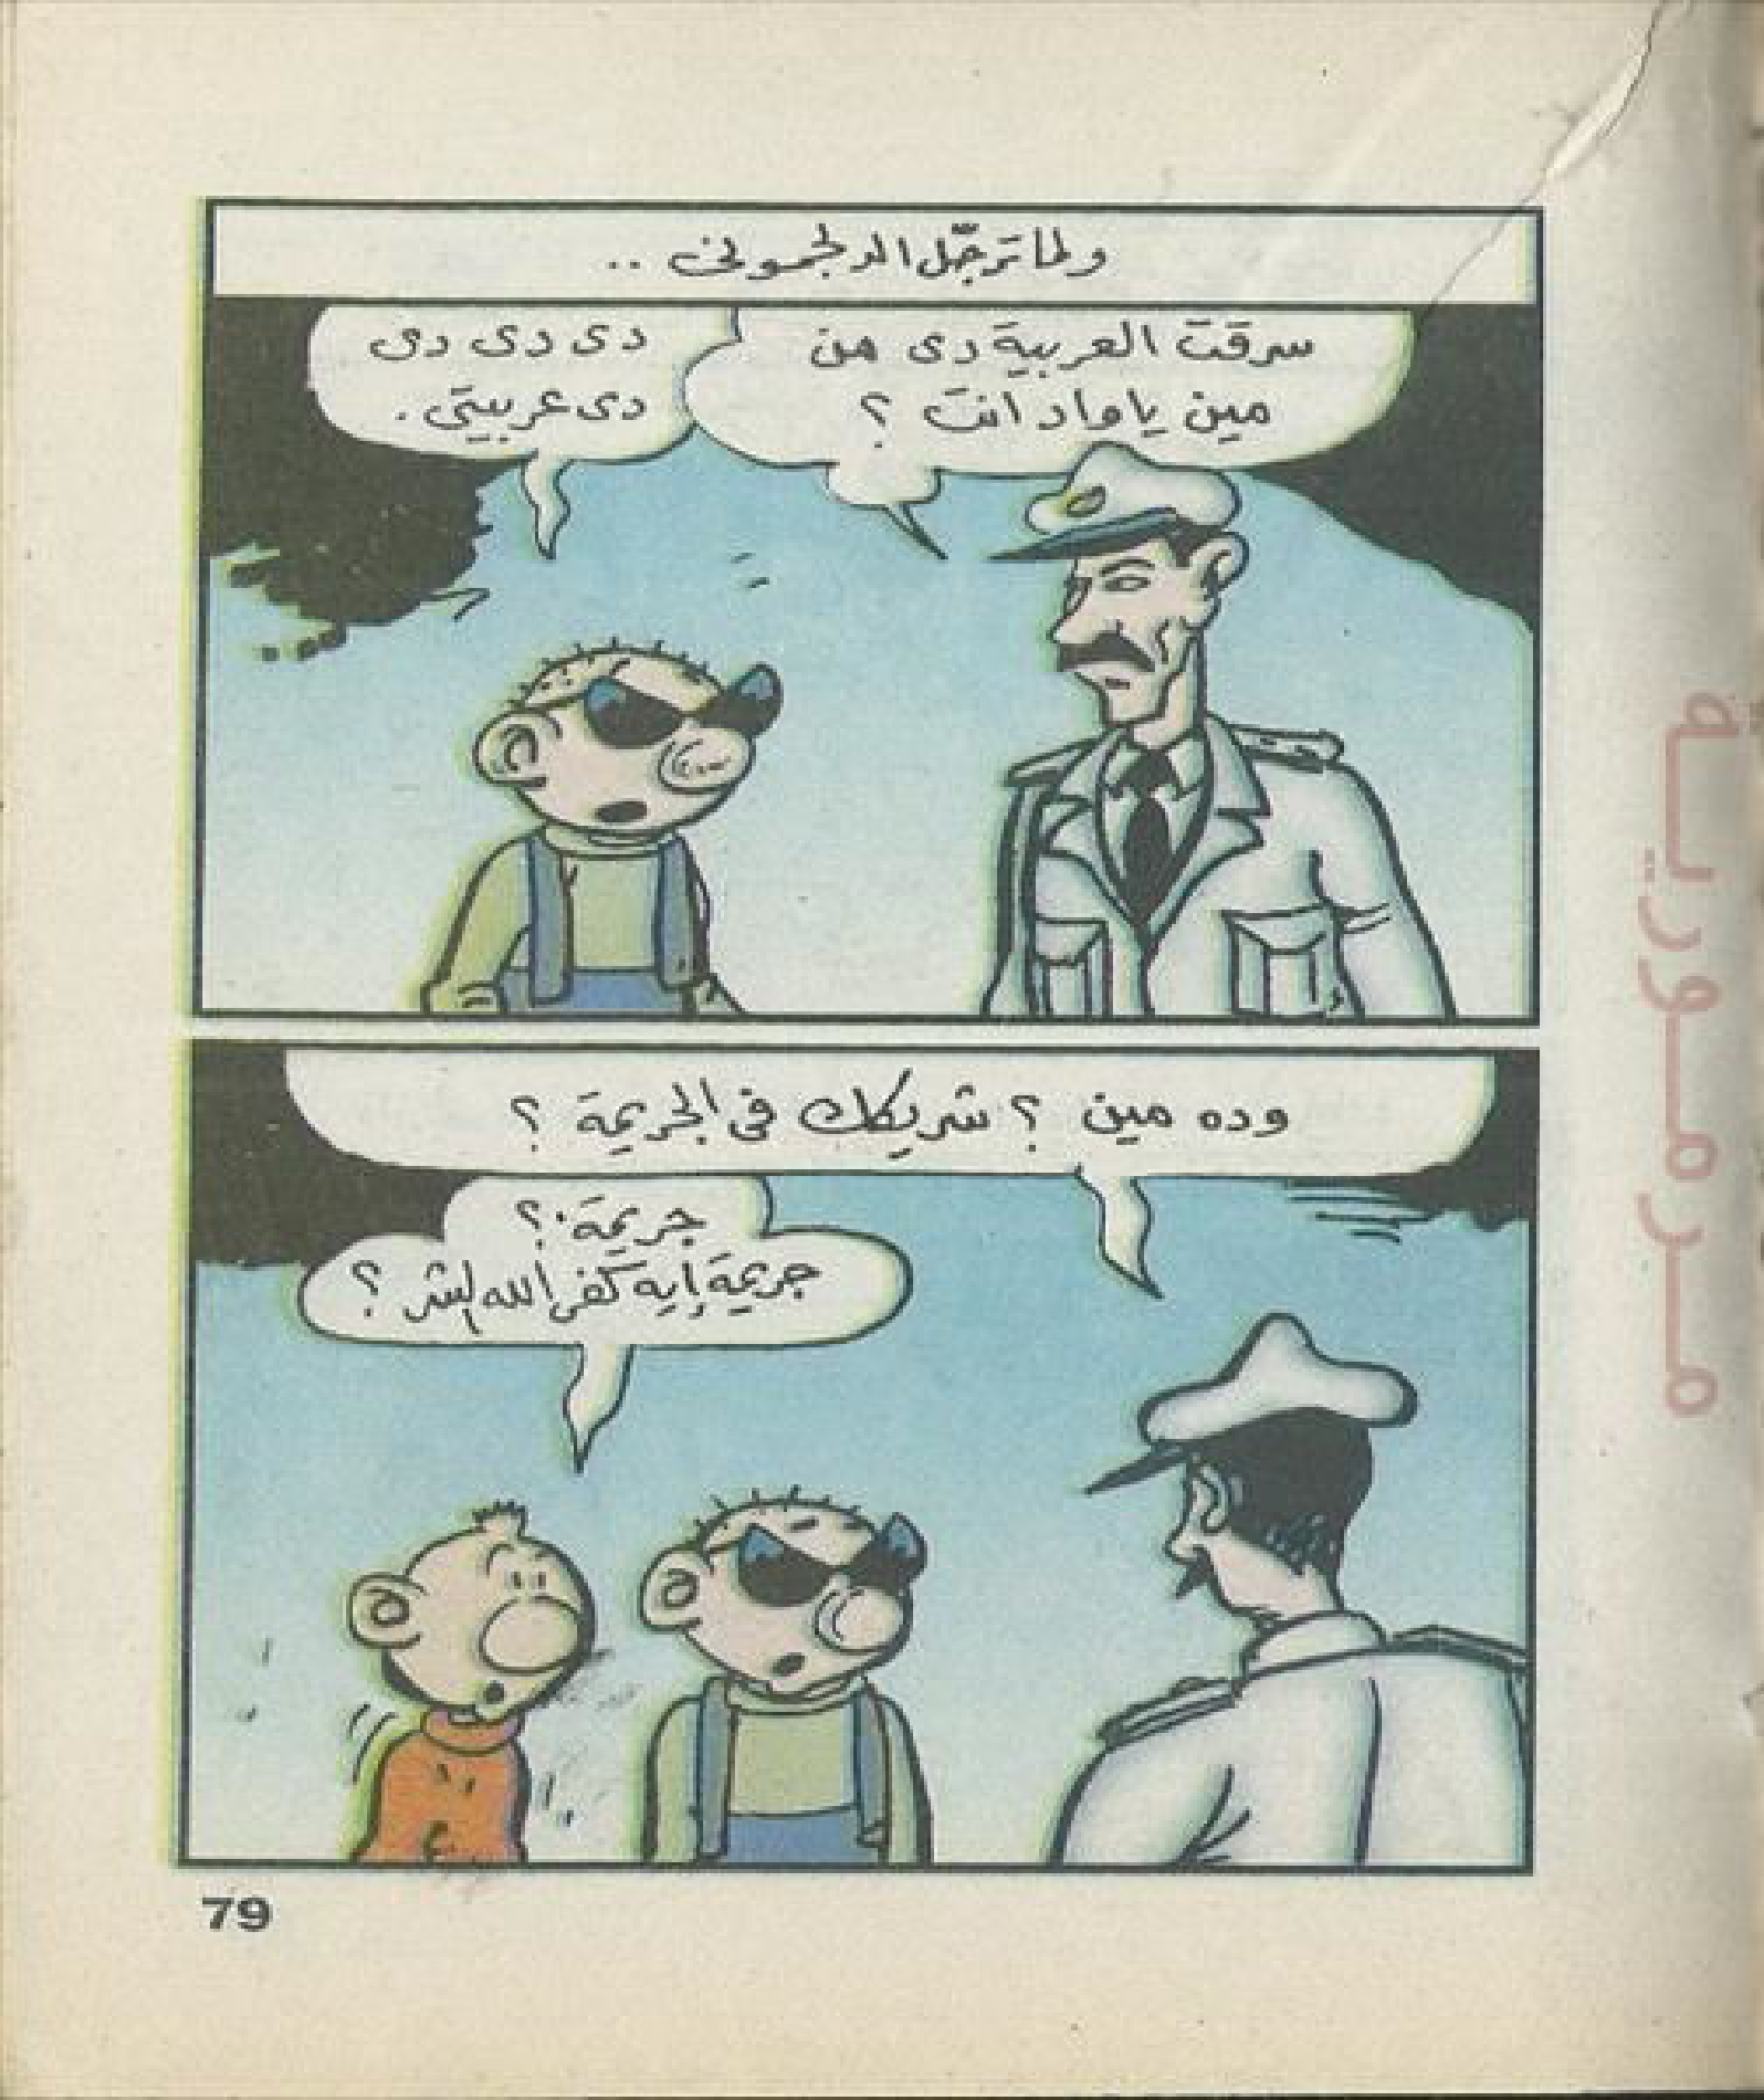 ولما ترجّل الدلجموني ..
سرقت العربية دى من
مين ياواد انت ؟
دى دى دى
دى عربيتي .
وده مين ؟ شريكك فى الجريمة ؟
جريمة ؟
جريمة إيه كفى الله الشر ؟
79
مرمورية